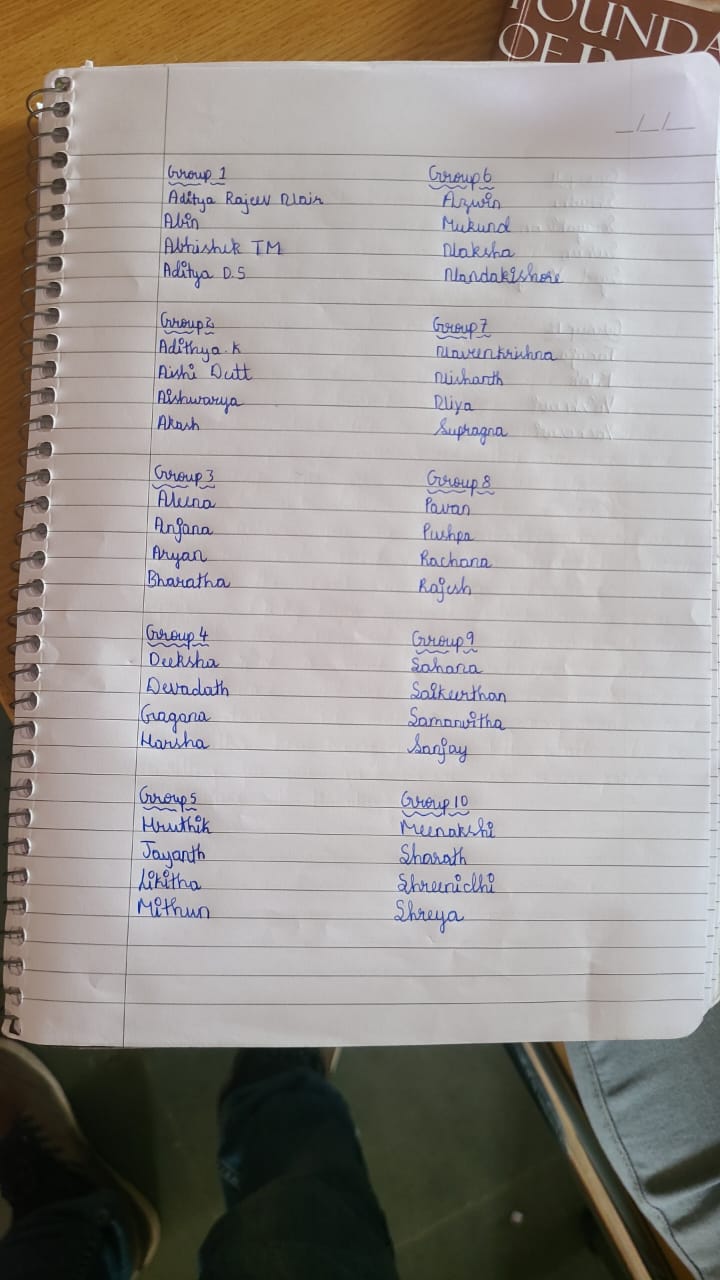 FOUNDA
OF
_/_/_
Group 1
Aditya Rajeev Nair
Abin
Abhishek TM
Aditya D.S
Group 2
Adithya.K
Aishi Dutt
Aishwarya
Akash
Group 3
Aleena
Anjana
Aryan
Bharatha
Group 4
Deeksha
Devadath
Gagana
Harsha
Group 5
Hruthik
Jayanth
Likitha
Mithun
Group 6
Azwin
Mukund
Naksha
Nandakishore
Group 7
Naveenkrishna
Nishanth
Niya
Supragna
Group 8
Pavan
Pushpa
Rachana
Rajesh
Group 9
Sahana
Saikeerthan
Samanvitha
Sanjay
Group 10
Meenakshi
Sharath
Shreenidhi
Shreya